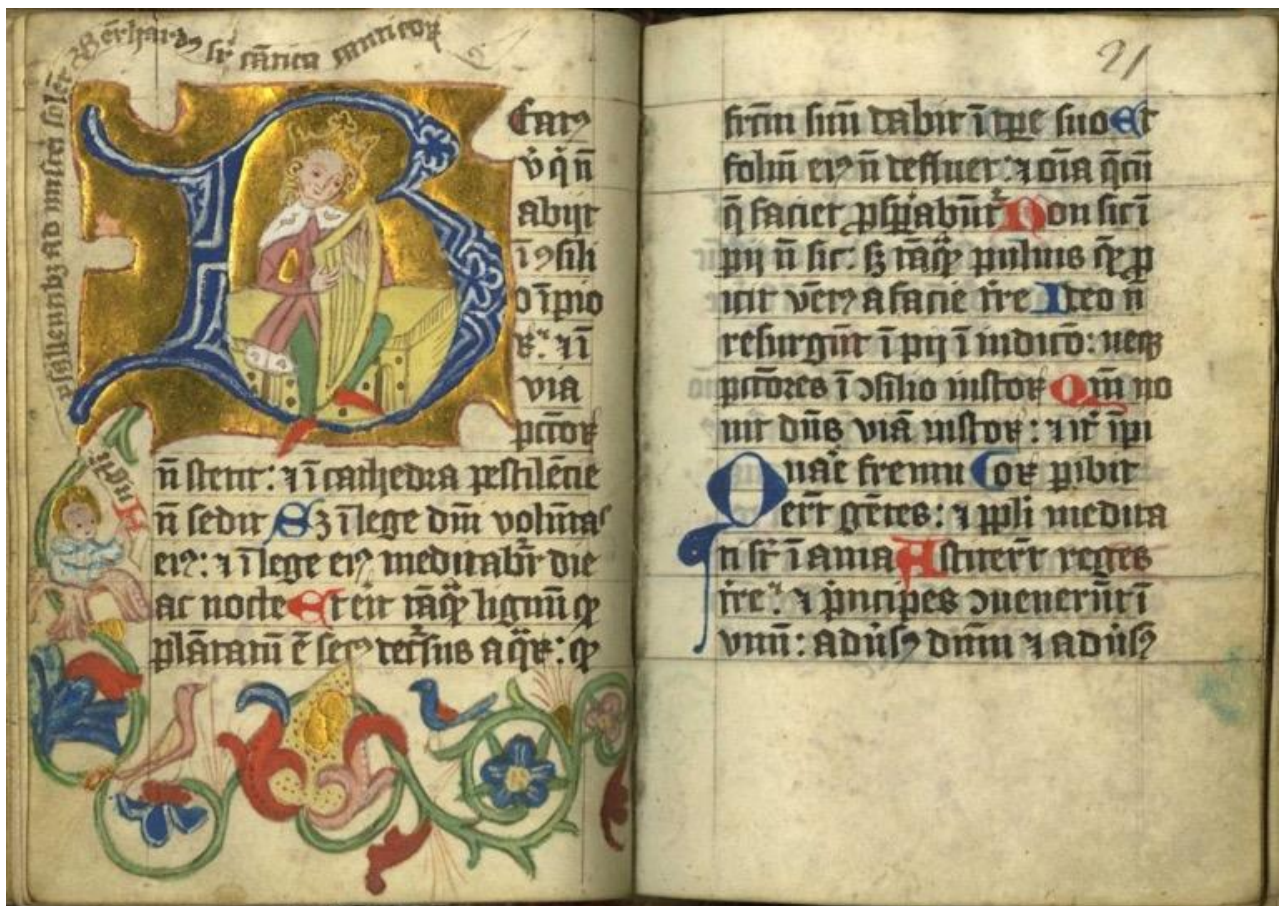 Bērhardꝰ sr̄ cātica canticoꝝ
psallentibꝫ ad misceri solēt
Beatꝰ
v̇ q̇ n̄
abijt
ī ꝯsili
o īpio
ꝝ: ⁊ ī
via
pcc̄toꝝ
n̄ stetit: ⁊ ī cathedra pestilēcie
n̄ sedit Sꝫ ī lege dn̄i volūtas
eiꝰ: ⁊ ī lege eiꝰ meditabit̄ die
ac nocte Et erit tāq̄ lignū qꝫ
plātatū ē secꝰ decursus aq̄ꝝ: qꝫ
21
frc̄m suū dabit ī tp̄e suo Et
foliū eiꝰ n̄ defluet: ⁊ oīa q̄cū
q̄ faciet ꝓsꝑabūt̄ Non sic ī
pij n̄ sic: sꝫ tāq̄ puluis qꝫ ꝓ
icit vētꝰ a facie tr̄e Ideo n̄
resurgūt ī pij ī iudicō: neqꝫ
pcc̄tores ī ꝯsilio iustoꝝ Qm̄ no
uit dn̄s viā iustoꝝ: ⁊ it̄ īpi
Quare fremu Coꝝ pibit
erūt gētes: ⁊ ppl̄i medita
ti sr̄ ī ania Astiterūt reges
tr̄e: ⁊ pṅcipes ꝯuenerūt ī
vnū: aduꝰsꝰ dn̄m ⁊ aduꝰsꝰ